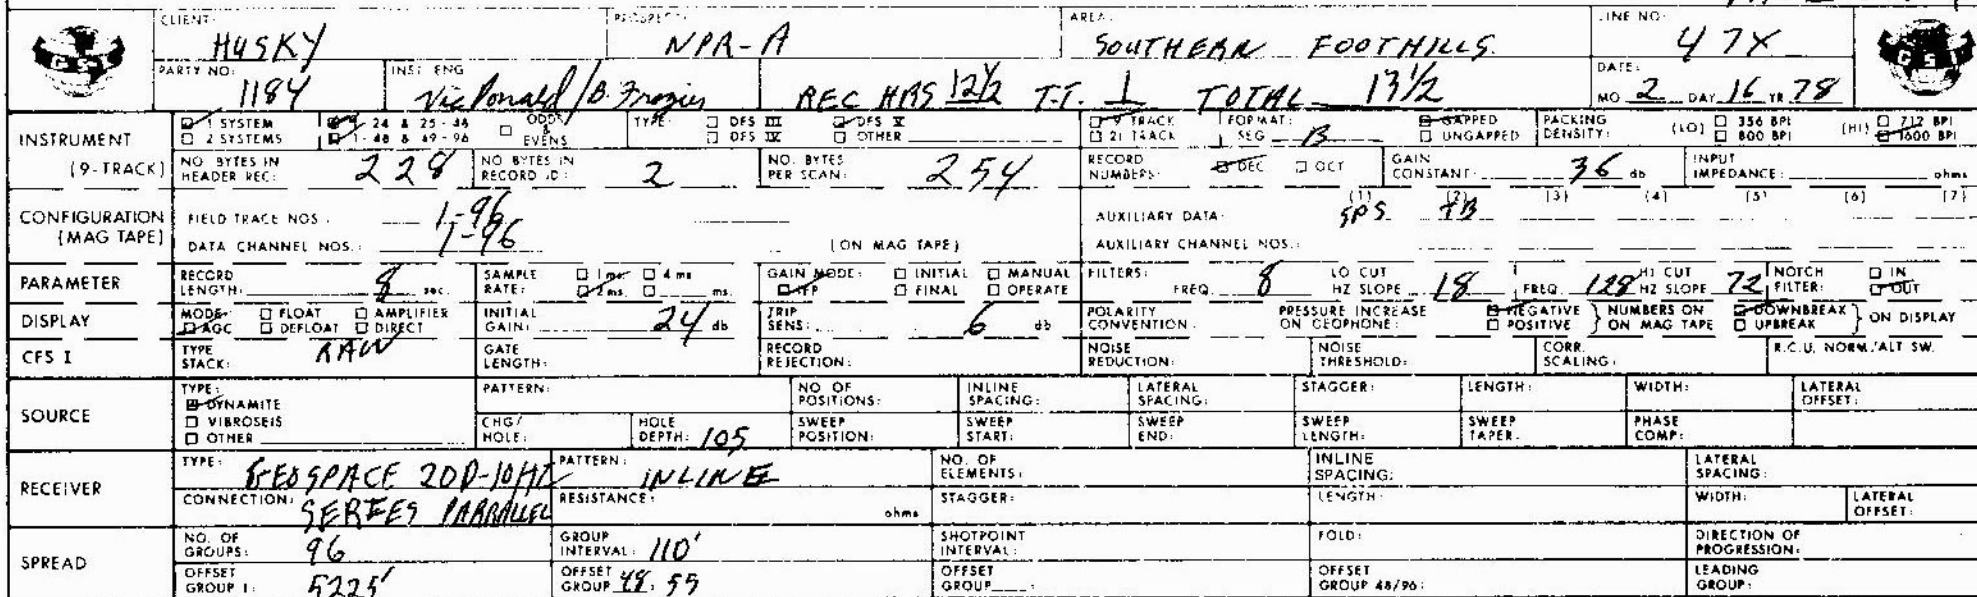 CLIENT: HUSKY PROSPECT: NPR-A AREA: SOUTHERN FOOTHILLS LINE NO: 47X
GSI GSI
PARTY NO: 1184 INST ENG Vic Ronald/B. Frazier REC HRS 12 1/2 T.T. 1 TOTAL 13 1/2 DATE: MO 2 DAY 16 YR 78
INSTRUMENT (9-TRACK)
1 SYSTEM 1-24 & 25-48 ODDS & EVENS TYPE: DFS III DFS V 9 TRACK FORMAT: GAPPED PACKING DENSITY: (LO) 356 BPI (HI) 712 BPI
2 SYSTEMS 1-48 & 49-96 DFS IV OTHER 21 TRACK SEG B UNGAPPED 800 BPI 1600 BPI
NO. BYTES IN HEADER REC: 228 NO BYTES IN RECORD ID: 2 NO. BYTES PER SCAN: 254 RECORD NUMBERS: DEC OCT GAIN CONSTANT: 36 db INPUT IMPEDANCE: ohms
CONFIGURATION (MAG TAPE)
FIELD TRACE NOS: 1-96 AUXILIARY DATA: (1) SPS (2) TB (3) (4) (5) (6) (7)
DATA CHANNEL NOS.: 1-96 (ON MAG TAPE) AUXILIARY CHANNEL NOS.:
PARAMETER RECORD LENGTH: 8 sec. SAMPLE RATE: 1 ms 4 ms 2 ms. ms. GAIN MODE: INITIAL MANUAL IFP FINAL OPERATE FILTERS: FREQ. 8 LO CUT HZ SLOPE 18 FREQ. 128 HI CUT HZ SLOPE 72 NOTCH FILTER: IN OUT
DISPLAY MODE: FLOAT AMPLIFIER AGC DEFLOAT DIRECT INITIAL GAIN: 24 db TRIP SENS: 6 db POLARITY CONVENTION: PRESSURE INCREASE ON GEOPHONE: NEGATIVE POSITIVE } NUMBERS ON MAG TAPE DOWNBREAK UPBREAK } ON DISPLAY
CFS I TYPE STACK: RAW GATE LENGTH: RECORD REJECTION: NOISE REDUCTION: NOISE THRESHOLD: CORR. SCALING: R.C.U. NORM./ALT SW.
SOURCE
TYPE: DYNAMITE VIBROSEIS OTHER PATTERN: NO OF POSITIONS: INLINE SPACING: LATERAL SPACING: STAGGER: LENGTH: WIDTH: LATERAL OFFSET:
CHG/HOLE: HOLE DEPTH: 105 SWEEP POSITION: SWEEP START: SWEEP END: SWEEP LENGTH: SWEEP TAPER: PHASE COMP:
RECEIVER
TYPE: GEOSPACE 20D-10HZ PATTERN: INLINE NO. OF ELEMENTS: INLINE SPACING: LATERAL SPACING:
CONNECTION: SERIES PARRALLEL RESISTANCE: ohms STAGGER: LENGTH: WIDTH: LATERAL OFFSET:
SPREAD
NO. OF GROUPS: 96 GROUP INTERVAL: 110' SHOTPOINT INTERVAL: FOLD: DIRECTION OF PROGRESSION:
OFFSET GROUP 1: 5225' OFFSET GROUP 48: 55 OFFSET GROUP : OFFSET GROUP 48/96: LEADING GROUP: